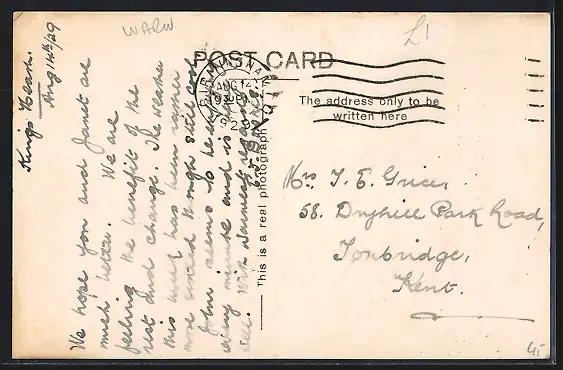 WARW
£1
King's Heath.
Aug 14th/29
We hope you and Janet are
much better. We are
feeling the benefit of the
rest and change. The weather
this week has been rather
more mixed though still cool.
John seems to be
every minute and is
well. With warmest regards
POST CARD
BIRMINGHAM
AUG 14
1929
The address only to be
written here
This is a real photograph
Mrs T. E. Grice,
58. Dryhill Park Road,
Tonbridge,
Kent.